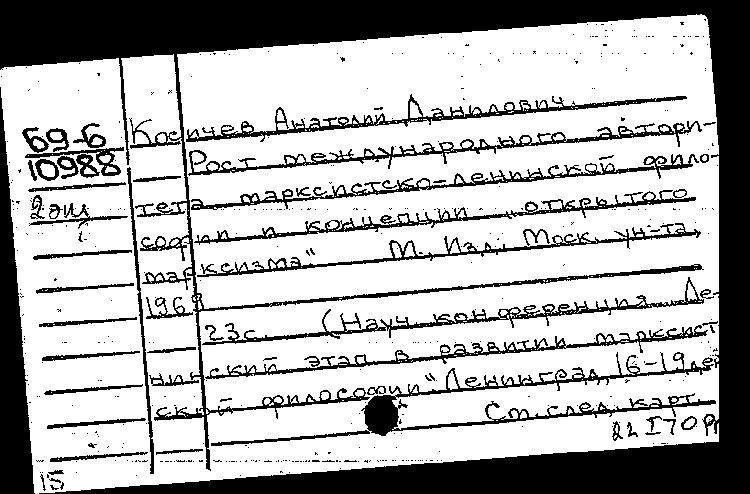 Косичев, Анатолий Данилович.
69-6
10988
Рост международного автори-
2 экз
тета марксистско-ленинской фило-
софии и концепции "открытого
марксизма" М., Изд. Моск. ун-та,
1969
23с. (Науч конференция "Ле-
нинский этап в развитии марксист
ской философии" Ленинград, 16-19 дек
См. след. карт.
22 I 70
15